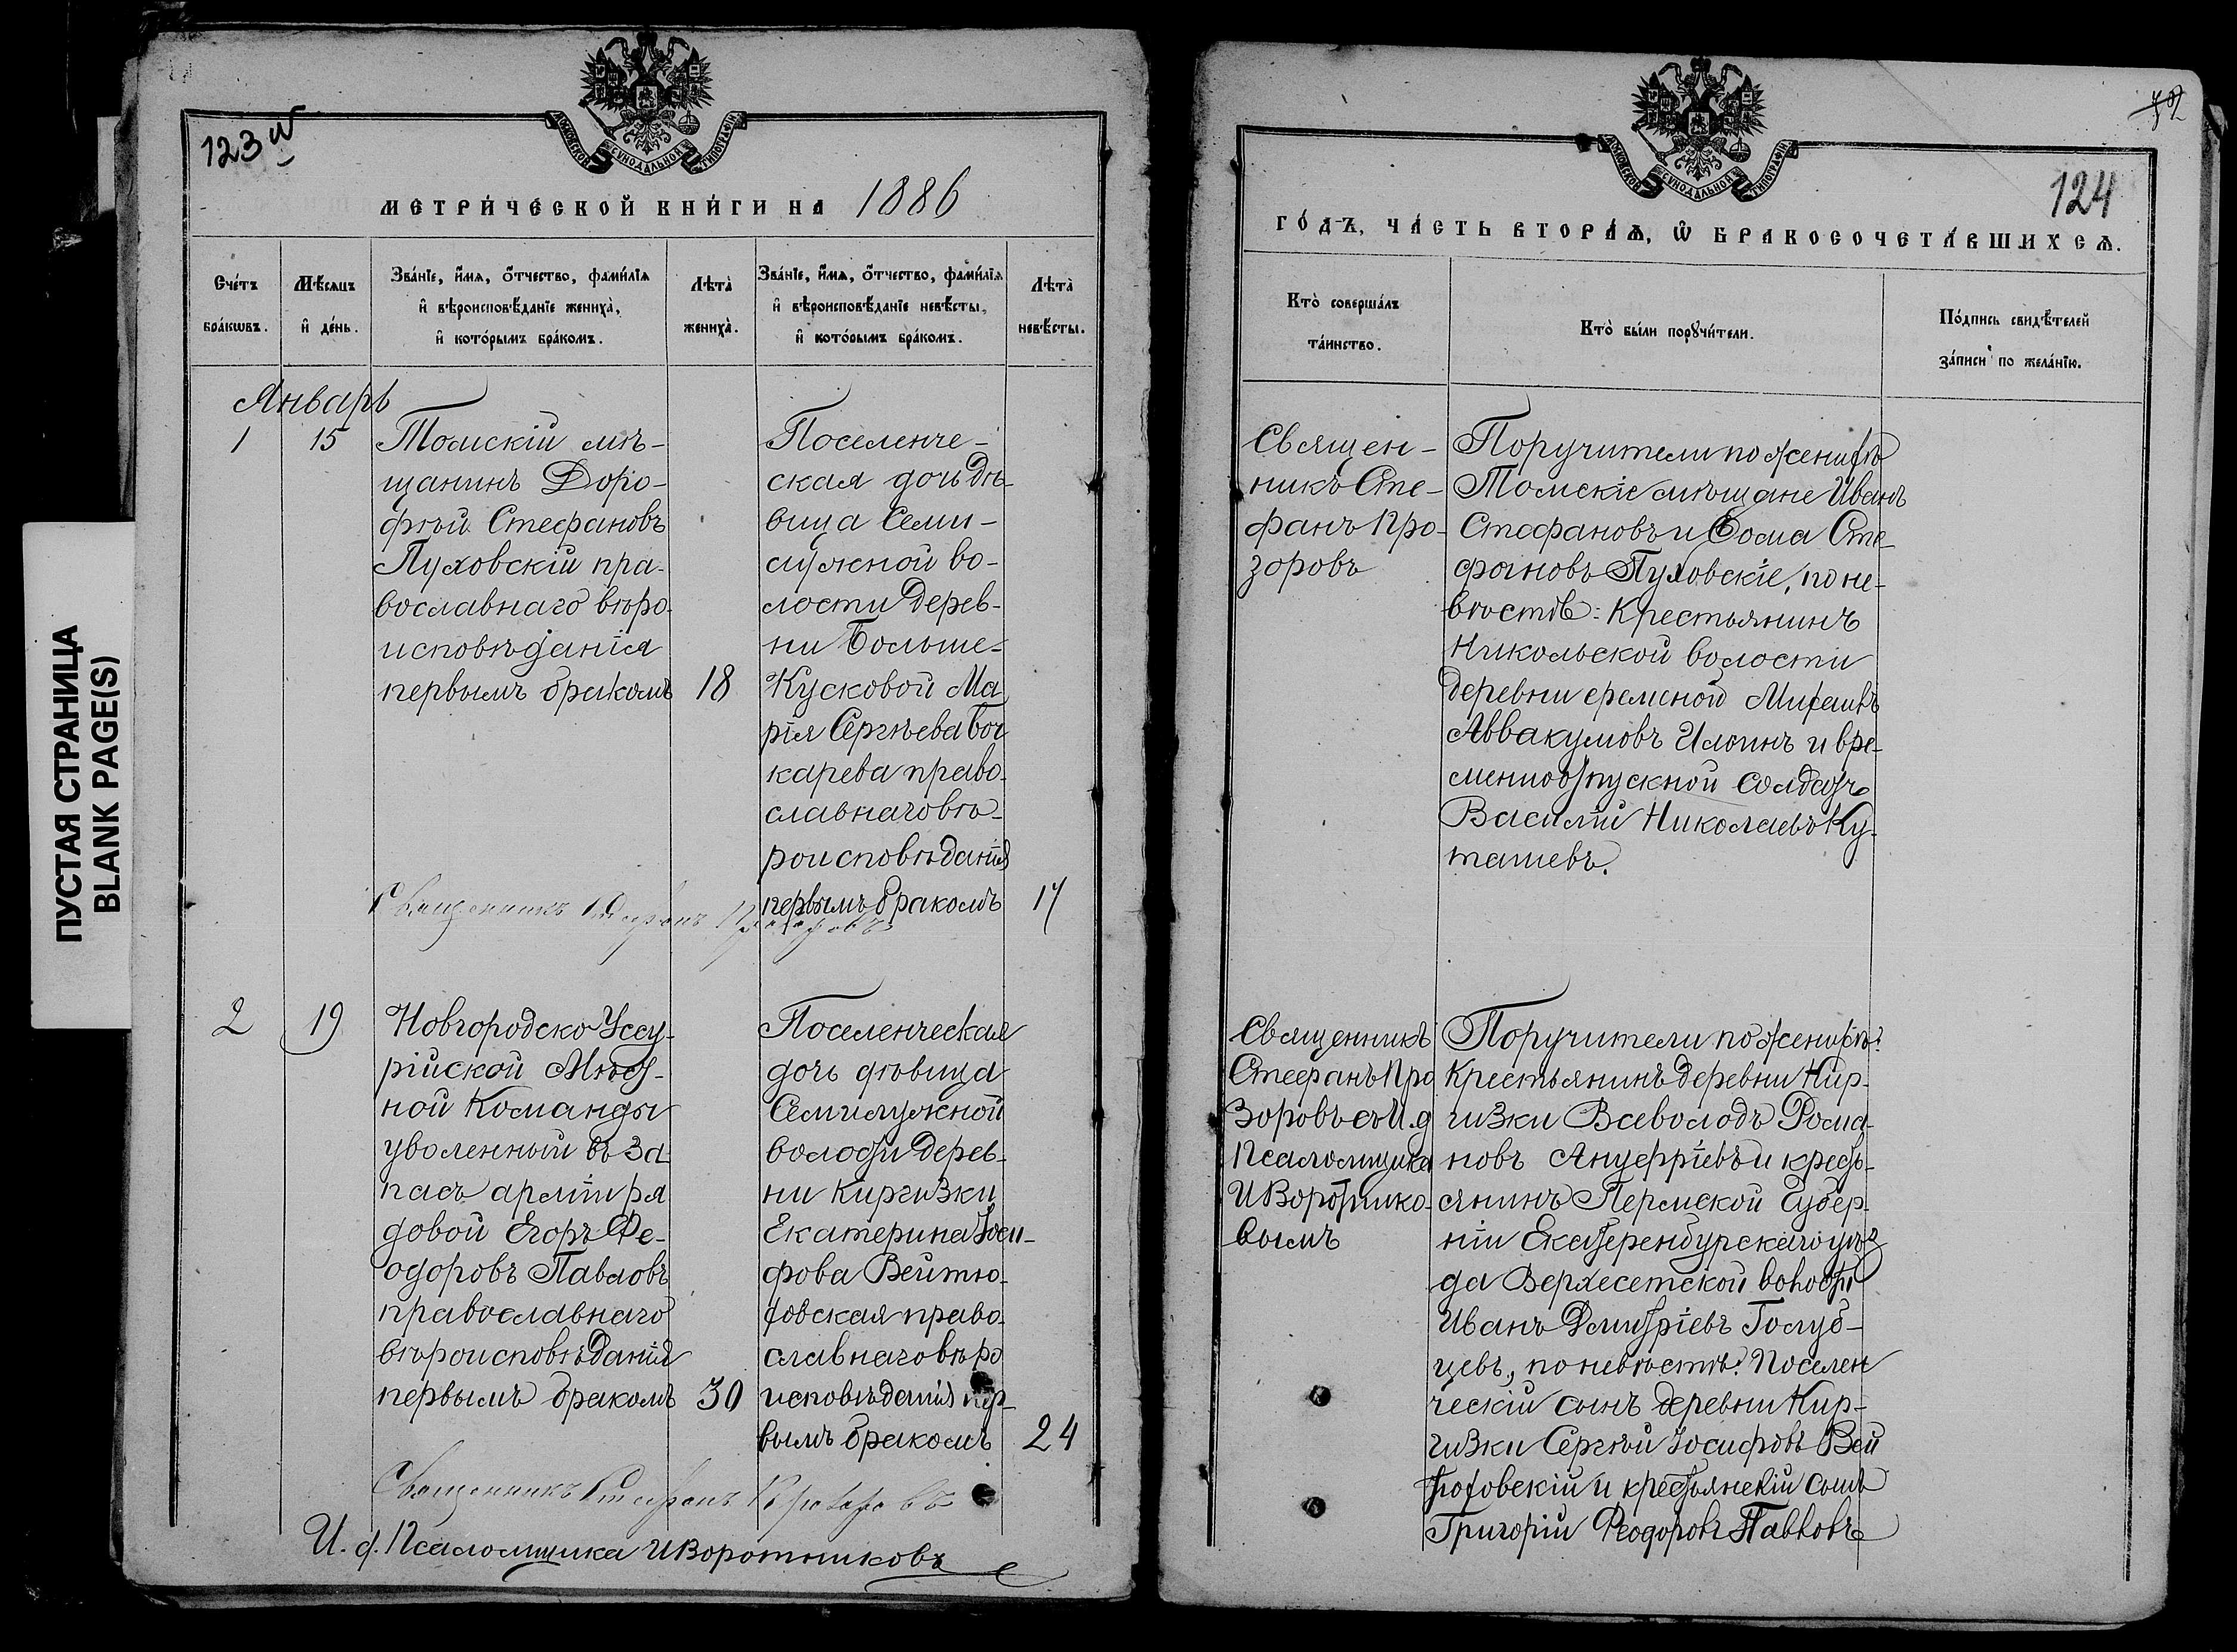 ПУСТАЯ СТРАНИЦА
BLANK PAGE(S)
123 и
МОСКОВСКОЙ СѴНОДАЛЬНОЙ ТИПОГРАФІИ
МЕТРИ́ЧЕСКОЙ КНИ́ГИ НА 1886
Сче́тъ
бра́кѡвъ.
Мѣ́сяцъ
и҆ де́нь.
Зва́нїе, и҆́мѧ, ѻ҆́тчество, фами́лїѧ
и҆ вѣроисповѣ́данїе жениха̀,
и҆ кото́рымъ бра́комъ.
Лѣта̀
жениха̀.
Зва́нїе, и҆́мѧ, ѻ҆́тчество, фами́лїѧ
и҆ вѣроисповѣ́данїе невѣ́сты,
и҆ кото́рымъ бра́комъ.
Лѣта̀
невѣ́сты.
Январь
1
15
Томскій мѣ-
щанинъ Доро-
фѣй Стефановъ
Пуховскій пра-
вославнаго вѣро-
исповѣданія
первымъ бракомъ
18
Поселенче-
ская дочь дѣ-
вица Семи-
лужной во-
лости дерев-
ни Больше-
Кусковой Ма
рія Сергѣева Боч
карева право-
славнаго вѣ-
роисповѣданія
первымъ бракомъ
17
Священникъ Стефанъ Прозоровъ
2
19
Новгородско Уссу-
рійской Мѣст-
ной Команды
уволенный въ за-
пасъ арміи ря
довой Егоръ Фе-
одоровъ Павловъ
православнаго
вѣроисповѣданія
первымъ бракомъ
30
Поселенческая
дочь дѣвица
Семилужной
волости дерев-
ни Киргизки
Екатерина Іоси-
фова Вейтю-
говская право-
славнаго вѣро
исповѣданія пер-
вымъ бракомъ
24
Священникъ Стефанъ Прозоровъ
И. д. Псаломщика И Воротниковъ
МОСКОВСКОЙ СѴНОДАЛЬНОЙ ТИПОГРАФІИ
124
ГО́ДЪ, ЧА́СТЬ ВТОРА́Ѧ, Ѡ҆ БРАКОСОЧЕТА́ВШИХСѦ.
Кто̀ соверша́лъ
та́инство.
Кто̀ бы́ли порꙋчи́тели.
По́дпись свидѣ́телей
за́писи по жела́нїю.
Священ-
никъ Сте-
фанъ Про-
зоровъ
Поручители по женихѣ
Томскіе мѣщане Иванъ
Стефановъ и Ѳома Сте-
фановъ Пуховскіе, по не-
вѣстѣ: Крестьянинъ
Никольской волости
деревни еремной Михаилъ
Аввакумовъ Ильинъ и вре-
менноотпускной Солдатъ
Василій Николаевъ Ку-
ташевъ.
Священникъ
Стефанъ Про
зоровъ съ И. д
Псаломщика
И Воротнико-
вымъ
Поручители по женихѣ:
Крестьянинъ деревни Кир-
гизки Всеволодъ Рома-
новъ Ануфріевъ и кресть-
янинъ Пермской Губер-
ніи Екатеренбурскаго уѣз
да Верхесетской волости
Иванъ Дмитріевъ Голуб-
цевъ, по невѣстѣ: Поселен
ческій сынъ деревни Кир-
гизки Сергѣй Іосифовъ Вей
тюговскій и крестьянскій сынъ
Григорій Феодоровъ Павловъ